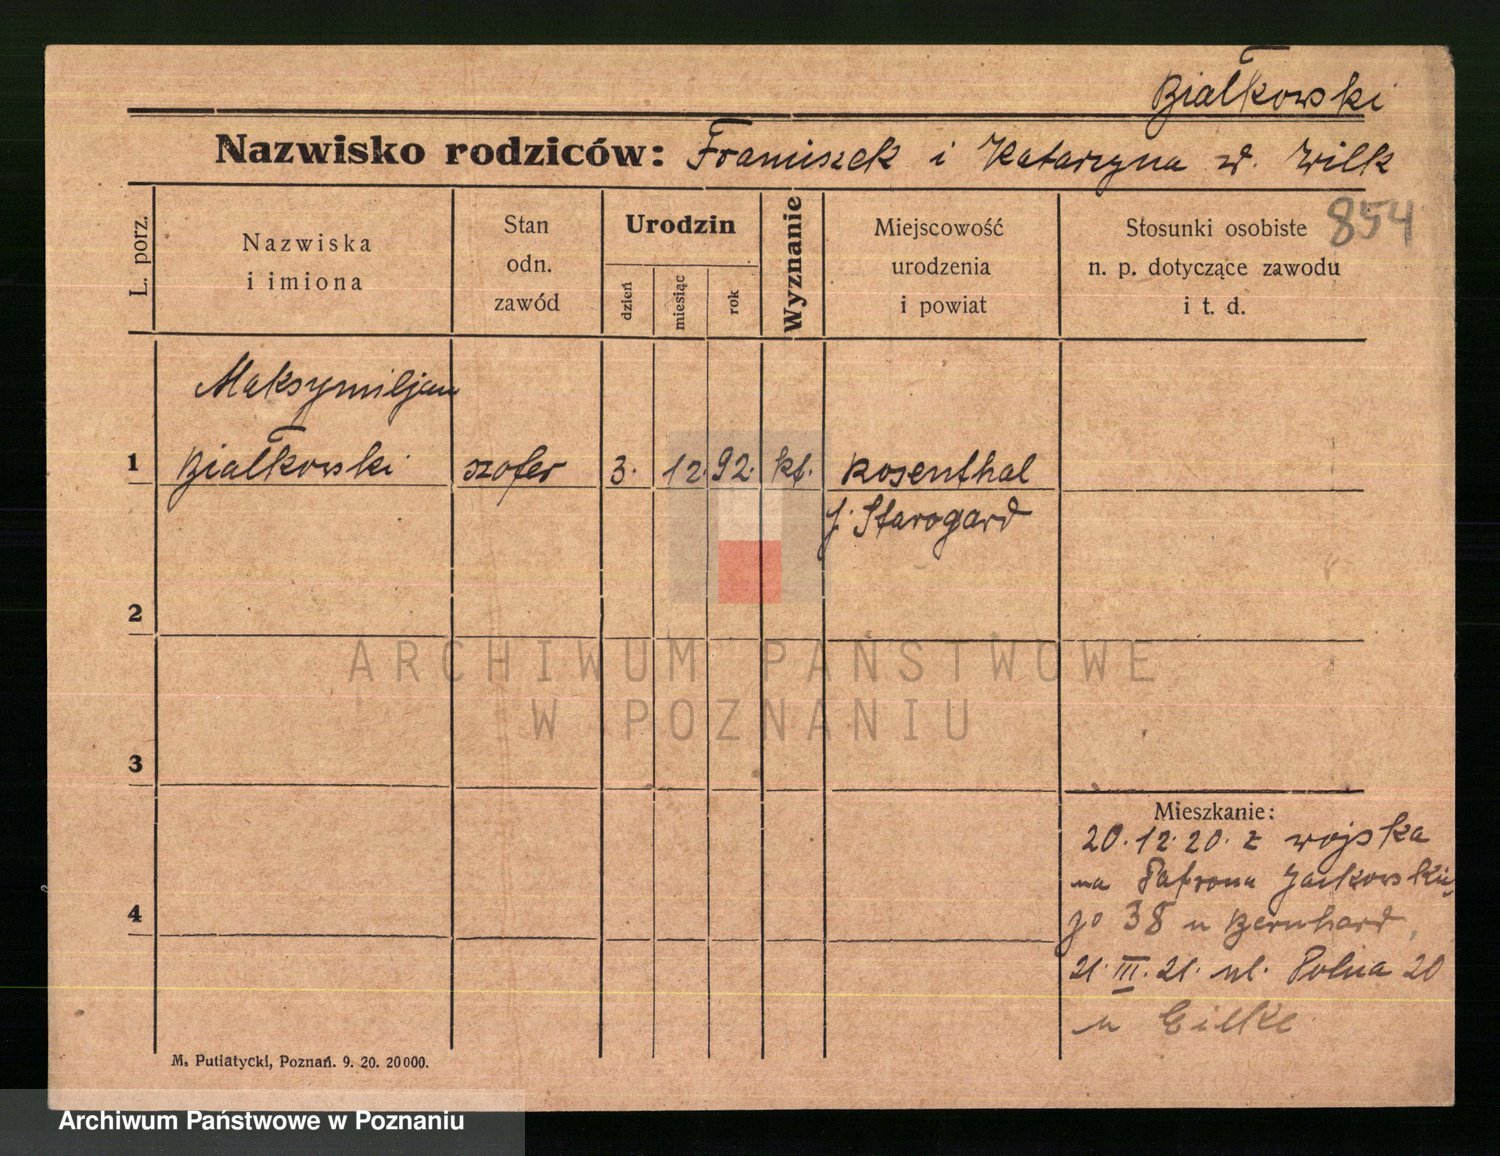 Białkowski
Nazwisko rodziców: Franciszek i Katarzyna z d. Wilk
854
L. porz.
Nazwiska
i imiona
Stan
odn.
zawód
Urodzin
dzień
miesiąc
rok
Wyznanie
Miejscowość
urodzenia
i powiat
Stosunki osobiste
n. p. dotyczące zawodu
i t. d.
Maksymiljan
1 Białkowski szofer 3. 12. 92. kt. Rosenthal
Starogard
2
ARCHIWUM PAŃSTWOWE
W POZNANIU
3
Mieszkanie:
20.12.20. z wojska
na Patrona Jackowskie
go 38 u Bernhard,
4
21.III.21. ul. Polna 20
u Gilke
M. Putiatycki, Poznań. 9. 20. 20000.
Archiwum Państwowe w Poznaniu